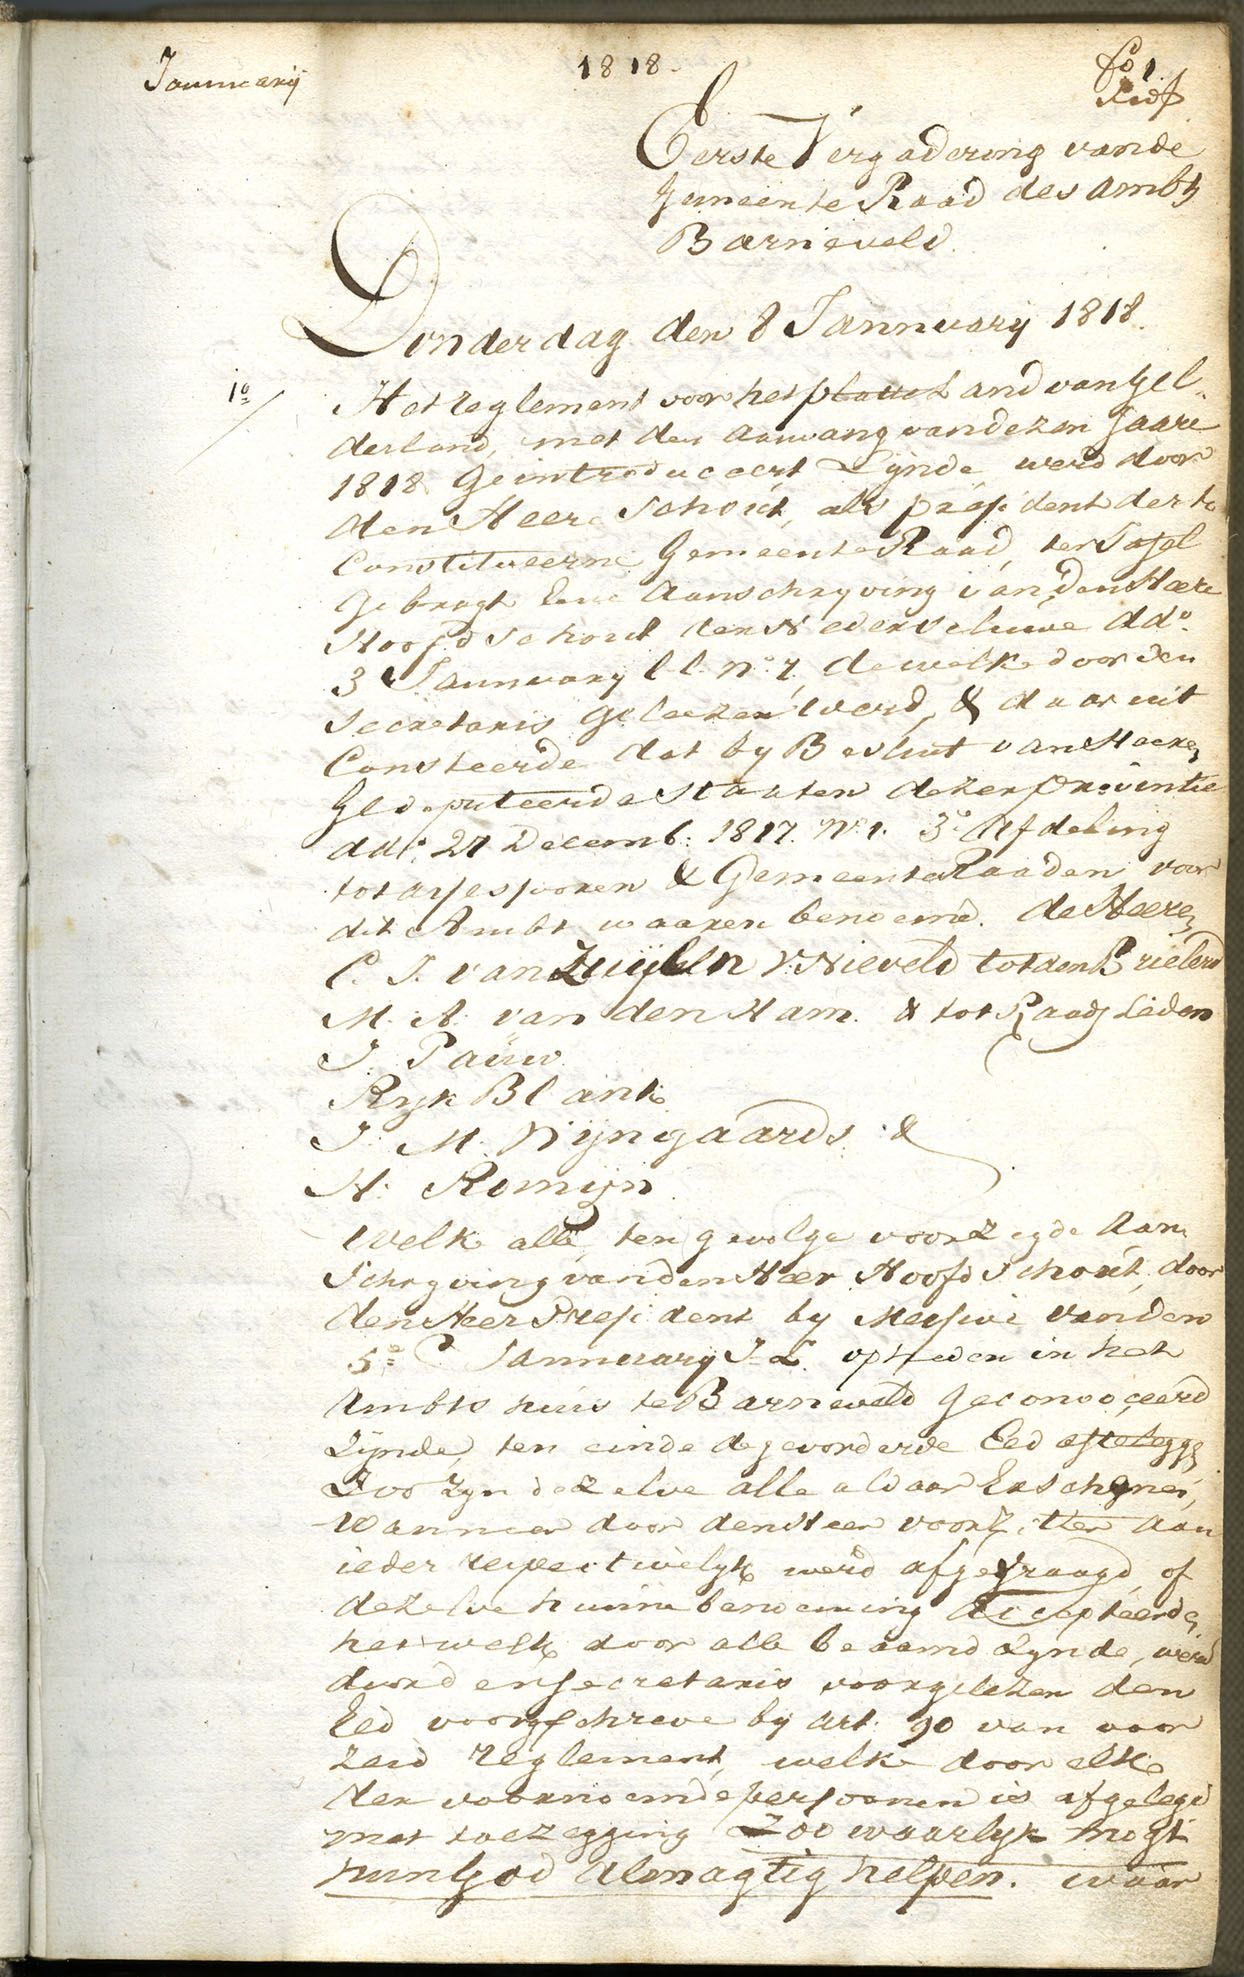 Jannuarij
1818.
fo 1.
Eerste Vergadering van de
Gemeente Raad des Ambts
Barneveld.
Donderdag den 8 Jannuarij 1818.
1o
Het reglement voor het platte Land van Gel-
derland, met den aanvang van dezen Jaare
1818 Geintroduceert Zijnde, werd door
den Heere Schout, als president der te
Constitueerne Gemeente Raad, ter Tafel
Gebragt Eene Aanschryving van den Heere
Hoofd Schout der Neder Veluwe ddo.
3 Jannuary l.l. No 7, dewelke door den
Secretaris Geleezen werd, & daar uit
Consteerde dat by Besluit van Heeren
Gedeputeerde Staaten dezer provintie
ddo. 27 Decemb: 1817. No. 1. 3e Afdeling
tot assessooren & GemeenteRaaden voor
dit Ambt waaren benoemd. de Heeren
C. J. van Zuijlen v. Nieveld tot den Brielerd
M. A. van den Ham. & tot Raads Leden
J. Pauw
Ryk Blank
J. M. Wijngaards &
H. Romijn
Welk alle, ten gevolge voorzegde Aan
Schryving van den Heer Hoofd Schout, door
den Heer President by Messive van den
5e Jannuary J.L. op heden in het
Ambts huis te Barneveld Geconvoceerd
Zijnde, ten einde de gevorderde Eed afteleggen
Zoo Zyn dezelve alle aldaar Erschynen,
Wanneer door den Heer voorzitter aan
ieder respectivelyk werd afgevraagd of
dezelve hunne benoeming Accepteerden
het welk door alle beaamd Zynde, werd
door den secretaris voorgelezen den
Eed voorgeschreve by Art. 90 van voor
zeid reglement, welke door elke
der voornoemde persoonen is afgelegd
met toezegging Zoo waarlyk mogt
hun God Almagtig helpen. waar